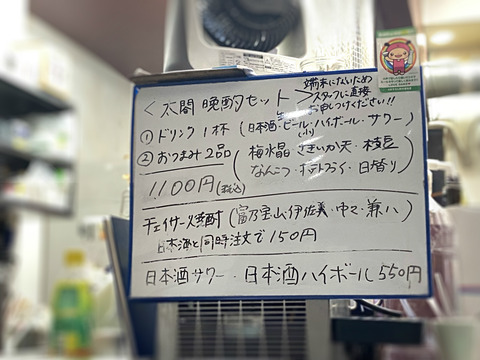 <太閤 晩酌セット>
端末にないため
スタッフに直接
お申しつけください!!
① ドリンク1杯 (日本酒・生ビール(小)・ハイボール・サワー)
② おつまみ2品 (梅水晶・さきいか天・枝豆
なんこつ・ポテトフライ・日替り)
1100円(税込)
チェイサー焼酎 (富乃宝山・伊佐美・中々・兼八)
日本酒と同時注文で150円
日本酒サワー・日本酒ハイボール550円